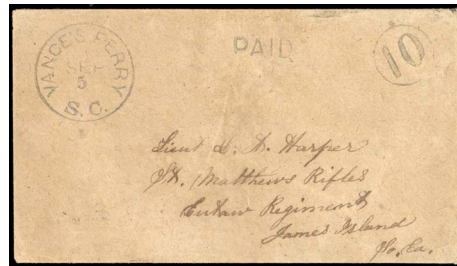 VANCE'S FERRY
SEP
5
S.C.
PAID
10
Lieut L. A. Harper
St. Matthews Rifles
Eutaw Regiment
James Island
So. Ca.